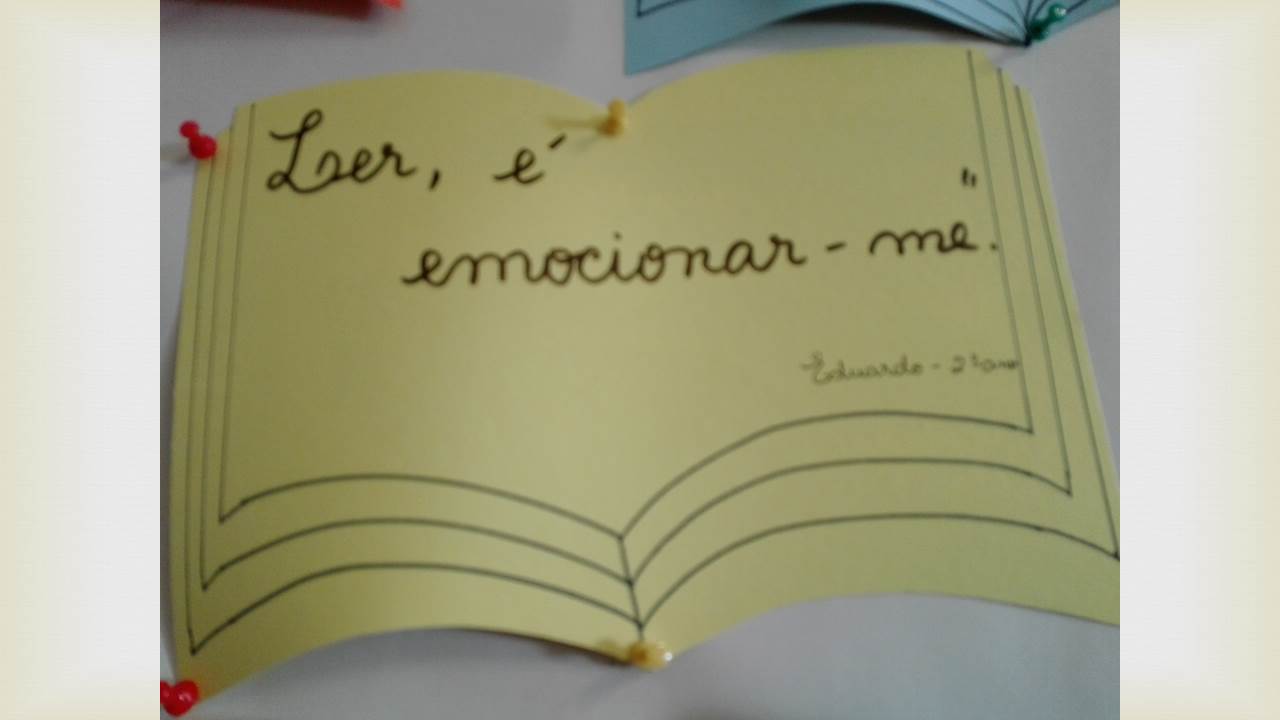 Ler, é
emocionar-me."
Eduardo - 2º ano